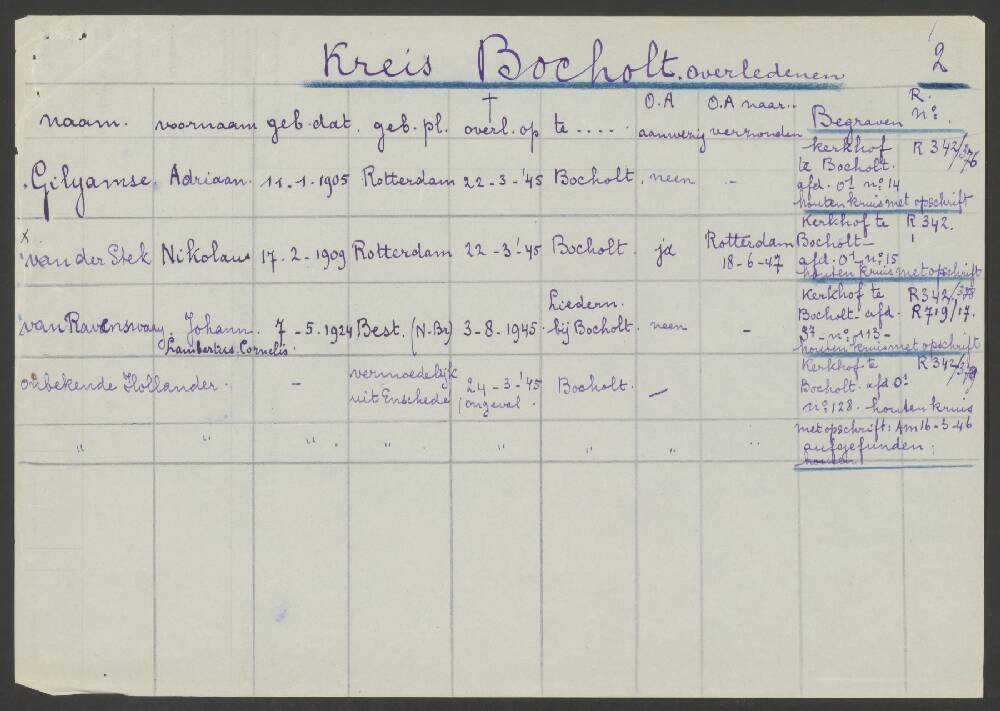 Kreis Bocholt. overledenen 2
naam. voornaam geb. dat. geb. pl. † overl. op te .... O.A aanwezig O.A naar.. verzonden Begraven R. nº.
Gilyamse. Adriaan. 11-1-1905 Rotterdam 22-3-'45 Bocholt. neen -
kerkhof R 342/376
te Bocholt.
afd. 0¹ nº 14
houten kruis met opschrift
x van der Stek Nikolaus 17.2-1909 Rotterdam 22-3-'45 Bocholt. ja Rotterdam
18-6-47
Kerkhof te R 342.
Bocholt- '
afd. 0¹ nº 15
houten kruis met opschrift
van Ravensway. Johann. 7-5-1924 Best. (N-Br) 3-8-1945. Liedern. neen -
Lambertus. Cornelis. bij Bocholt.
Kerkhof te R342/378
Bocholt. afd. R719/17.
nº 113-
houten kruis met opschrift
onbekende Hollander. - vermoedelijk 24-3-'45 Bocholt. -
uit Enschede ongeval.
Kerkhof te R 342/379
Bocholt. afd 0¹
nº 128. houten kruis
met opschrift: Am 16-3-46
aufgefunden.
houten
" " " " " " " "